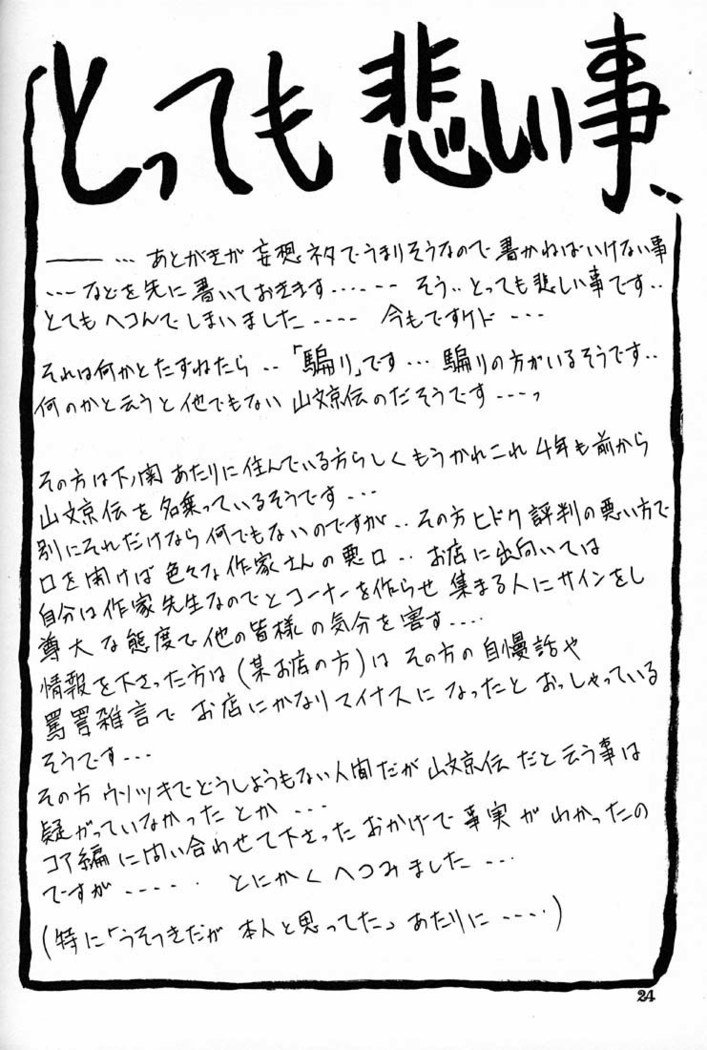 とっても悲しい事‥
―― … あとがきが 妄想ネタでうまりそうなので 書かねばいけない事
--- などを先に書いておきます…--- そう‥とっても悲しい事です‥
とてもヘコんでしまいました ---- 今もですケド ---
それは何かとたずねたら ‥「騙り」です… 騙りの方がいるそうです‥
何のかと云うと他でもない 山文京伝のだそうです ---っ
その方は下ノ関 あたりに住んでいる方らしく もうかれこれ 4年も前から
山文京伝を名乗っているそうです ---
別にそれだけなら何でもないのですが‥ その方ヒドク評判の悪い方で
口を開けば 色々な作家さんの悪口‥ お店に出向いては
自分は作家先生なのでとコーナーを作らせ 集まる人にサインをし
尊大な態度で他の皆様の気分を害す----
情報を下さった方は (某お店の方) は その方の自慢話や
罵詈雑言で お店にかなりマイナスに なったと おっしゃっている
そうです---
その方 ウソツキでどうしようもない人間だが 山文京伝だと云う事は
疑がっていなかった とか ---
コア編に問い合わせて下さった おかげで 事実が わかったの
ですが ----- とにかく へコみました ---
(特に「うそつきだが 本人と思ってた」あたりに ----)
24